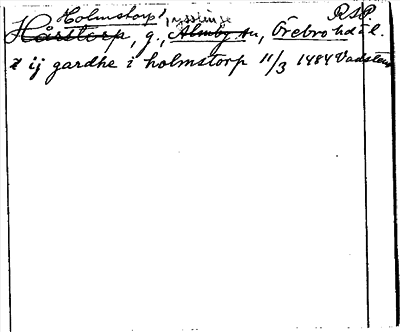 Holmstorp R.S.P.
Hårstorp, g., Almby sn, Örebro hd o l.
ij gardhe i holmstorp 11/3 1484 Vadstena